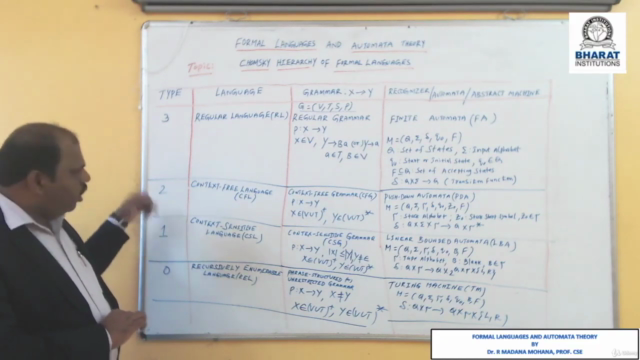 FORMAL LANGUAGES AND AUTOMATA THEORY
Topic: CHOMSKY HIERARCHY OF FORMAL LANGUAGES
BHARAT
INSTITUTIONS
TYPE LANGUAGE GRAMMAR X→Y RECOGNIZER/AUTOMATA/ABSTRACT MACHINE
G=(V,T,S,P)
3 REGULAR LANGUAGE(RL) REGULAR GRAMMAR FINITE AUTOMATA (FA)
P: X→Y
X∈V,
a∈T, B∈V
Q Set of States, Σ Input Alphabet
q₀ Start or Initial State, q₀∈Q
F⊆Q Set of Accepting States
(Transition Function)
2 CONTEXT-FREE LANGUAGE CONTEXT-FREE GRAMMAR PUSH-DOWN AUTOMATA (PDA)
(CFL)
P: X→Y
1 CONTEXT-SENSITIVE CONTEXT-SENSITIVE GRAMMAR LINEAR BOUNDED AUTOMATA (LBA)
LANGUAGE(CSL) (CSG)
P: X→Y
0 RECURSIVELY ENUMERABLE PHRASE-STRUCTURED TURING MACHINE (TM)
LANGUAGE(REL) UNRESTRICTED GRAMMAR
P: X→Y, X≠Y
FORMAL LANGUAGES AND AUTOMATA THEORY
BY
Dr. R MADANA MOHANA, PROF. CSE